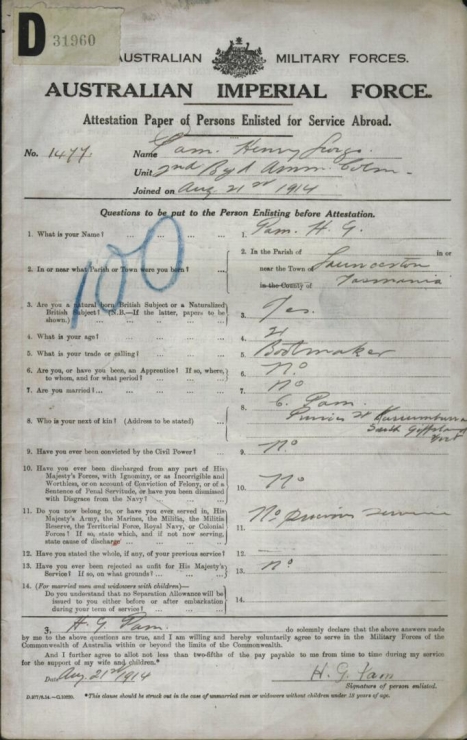 D 31960
AUSTRALIAN MILITARY FORCES.
AUSTRALIAN IMPERIAL FORCE.
Attestation Paper of Persons Enlisted for Service Abroad.
No. 1477 Name Pam. Henry George
Unit 2nd Bgd Amm. Colm.
Joined on Aug 21st 1914
Questions to be put to the Person Enlisting before Attestation.
1. What is your Name? ... ... ... ... 1. Pam. H. G.
100
2. In or near what Parish or Town were you born? ... 2. In the Parish of in or
near the Town of Launceston
in the County of Tasmania
3. Are you a natural born British Subject or a Naturalized
British Subject? (N.B.—If the latter, papers to be
shown.) ... 3. Yes.
4. What is your age? ... 4.
5. What is your trade or calling? ... 5. Bootmaker
6. Are you, or have you been, an Apprentice? If so, where,
to whom, and for what period? ... 6. No
7. Are you married? ... 7. No
8. Who is your next of kin? (Address to be stated) ... 8. C. Pam.
St Korumburra
South Gippsland
Vict
9. Have you ever been convicted by the Civil Power? 9. No.
10. Have you ever been discharged from any part of His
Majesty's Forces, with Ignominy, or as Incorrigible and
Worthless, or on account of Conviction of Felony, or of a
Sentence of Penal Servitude, or have you been dismissed
with Disgrace from the Navy? ... 10. No
11. Do you now belong to, or have you ever served in, His
Majesty's Army, the Marines, the Militia, the Militia
Reserve, the Territorial Force, Royal Navy, or Colonial
Forces? If so, state which, and if not now serving,
state cause of discharge ... 11. No previous service
12. Have you stated the whole, if any, of your previous service? 12.
13. Have you ever been rejected as unfit for His Majesty's
Service? If so, on what grounds? ... 13. No
14. (For married men and widowers with children)—
Do you understand that no Separation Allowance will be
issued to you either before or after embarkation
during your term of service? 14.
I, H. G. Pam. do solemnly declare that the above answers made
by me to the above questions are true, and I am willing and hereby voluntarily agree to serve in the Military Forces of the
Commonwealth of Australia within or beyond the limits of the Commonwealth.
And I further agree to allot not less than two-fifths of the pay payable to me from time to time during my service
for the support of my wife and children.*
Date Aug. 21st 1914 H. G. Pam
Signature of person enlisted.
*This clause should be struck out in the case of unmarried men or widowers without children under 18 years of age.